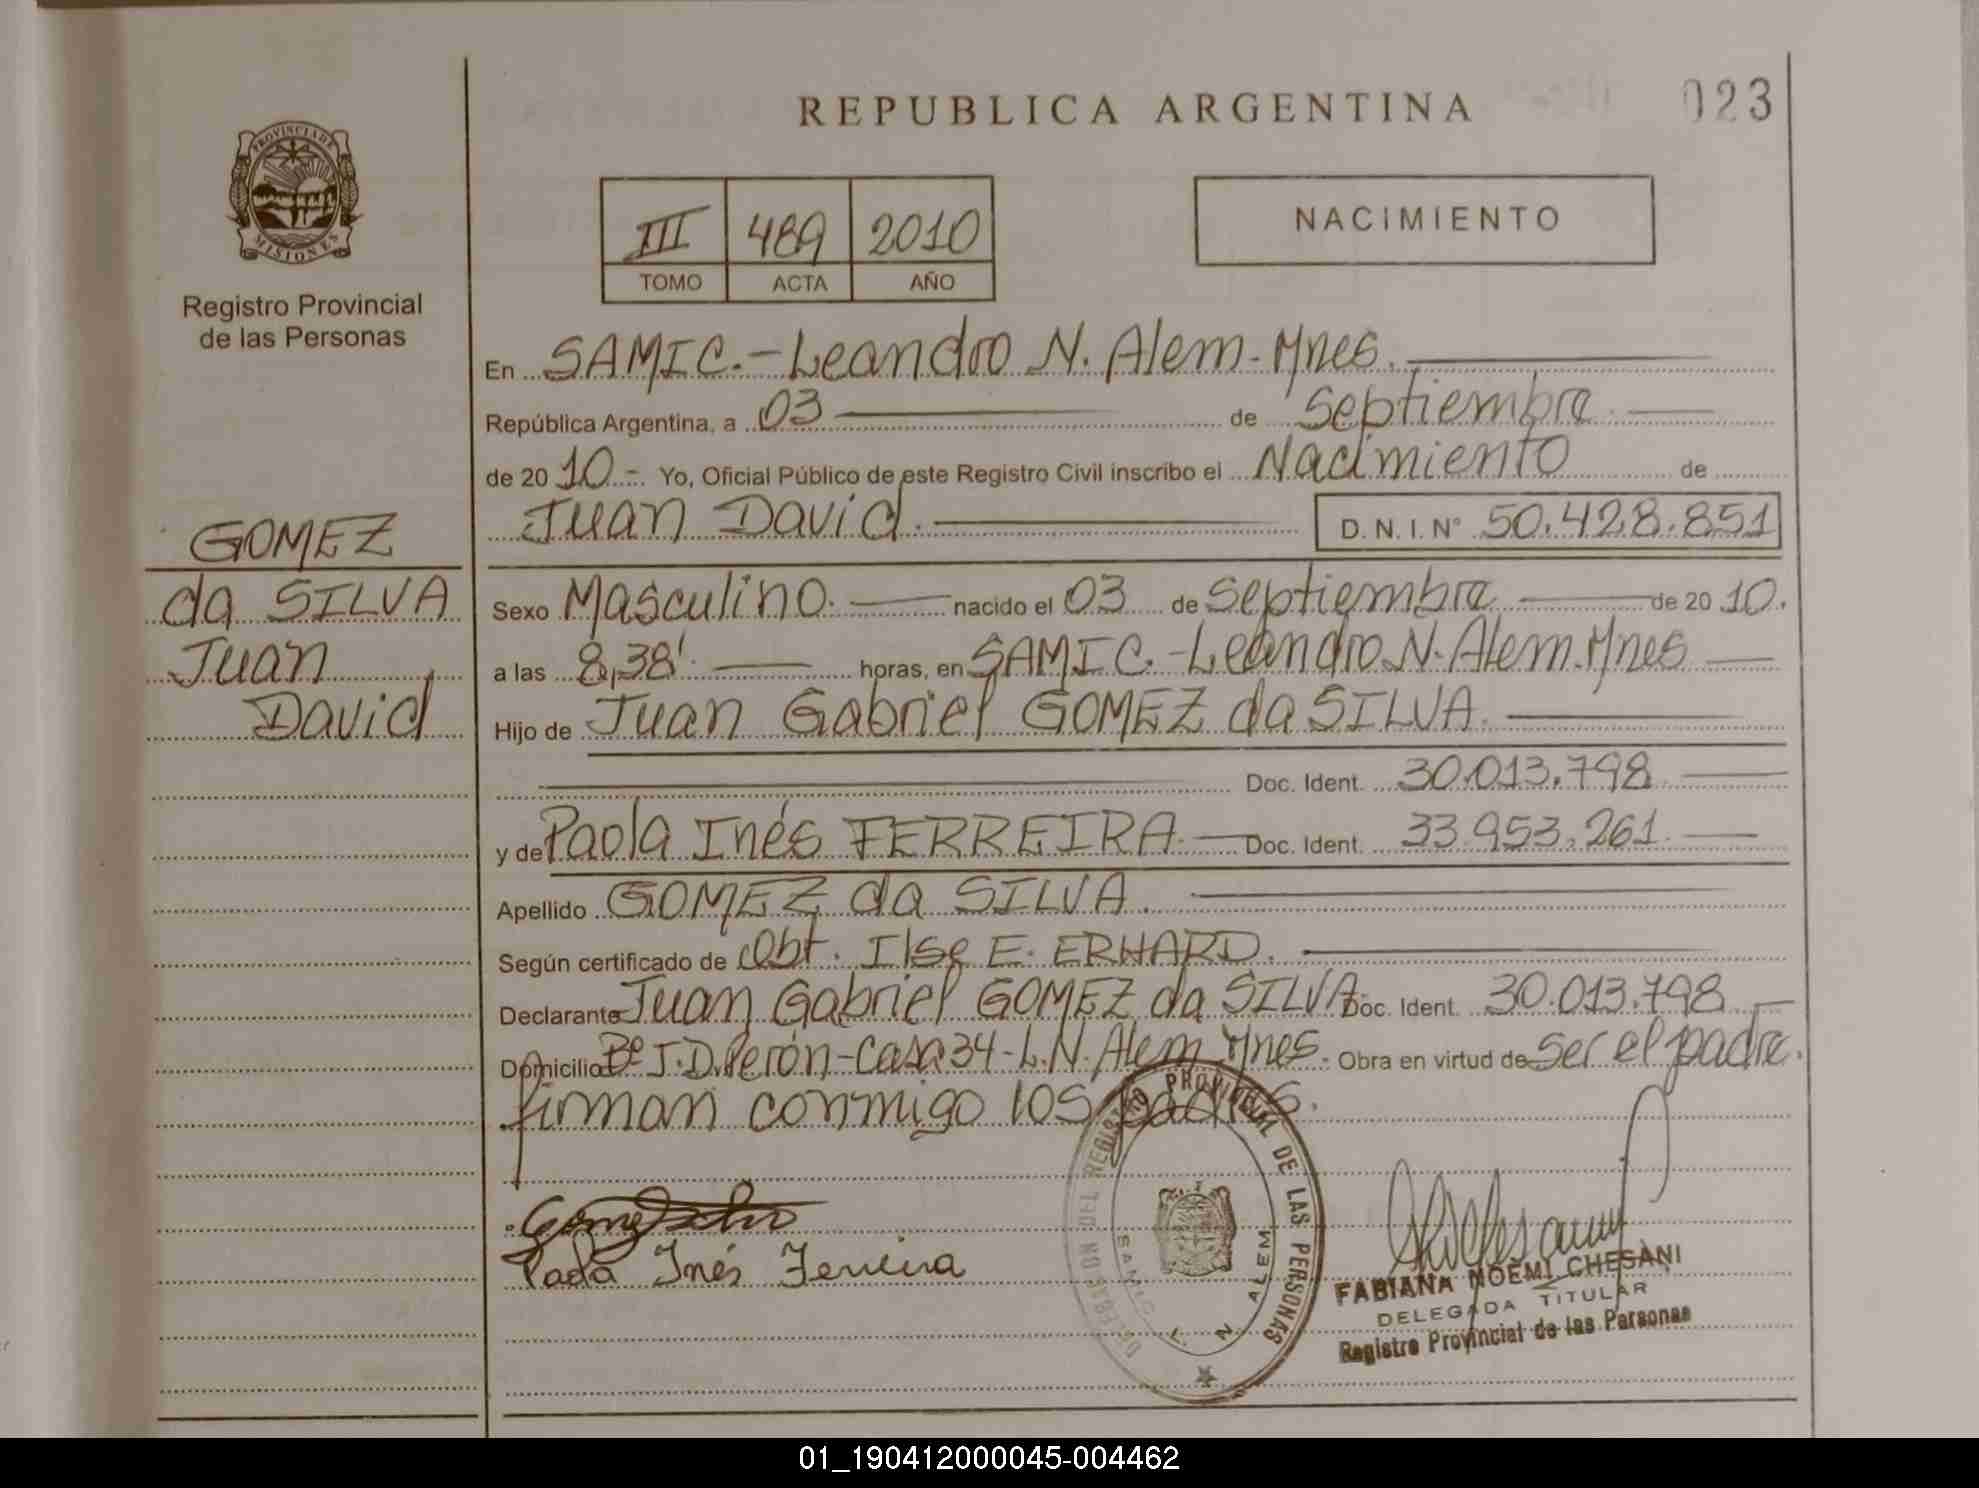 REPUBLICA ARGENTINA
023
PROVINCIA DE
MISIONES
Registro Provincial
de las Personas
III 489 2010
TOMO ACTA AÑO
NACIMIENTO
En SAMIC.-Leandro N. Alem-Mnes.
República Argentina, a 03 de Septiembre
de 2010.- Yo, Oficial Público de este Registro Civil inscribo el Nacimiento de
Juan David. D.N.I. N° 50.428.851
GOMEZ
da SILVA
Juan
David
Sexo Masculino. nacido el 03 de Septiembre de 2010.
a las 8,38'. horas, en SAMIC.-Leandro N.Alem.Mnes
Hijo de Juan Gabriel GOMEZ da SILVA.
Doc. Ident. 30.013.798
y de Paola Inés FERREIRA. Doc. Ident. 33.953.261.
Apellido GOMEZ da SILVA.
Según certificado de Obt. Ilse E. ERHARD.
Declarante Juan Gabriel GOMEZ da SILVA. Doc. Ident. 30.013.798
Domicilio Bº J.D.Perón-Casa 34-L.N.Alem Mnes. Obra en virtud de ser el padre.
firman conmigo los padres.
Paola Inés Ferreira
DELEGACION DEL REGISTRO PROVINCIAL DE LAS PERSONAS
SAMIC L N ALEM
FABIANA NOEMI CHESANI
DELEGADA TITULAR
Registro Provincial de las Personas
01_190412000045-004462